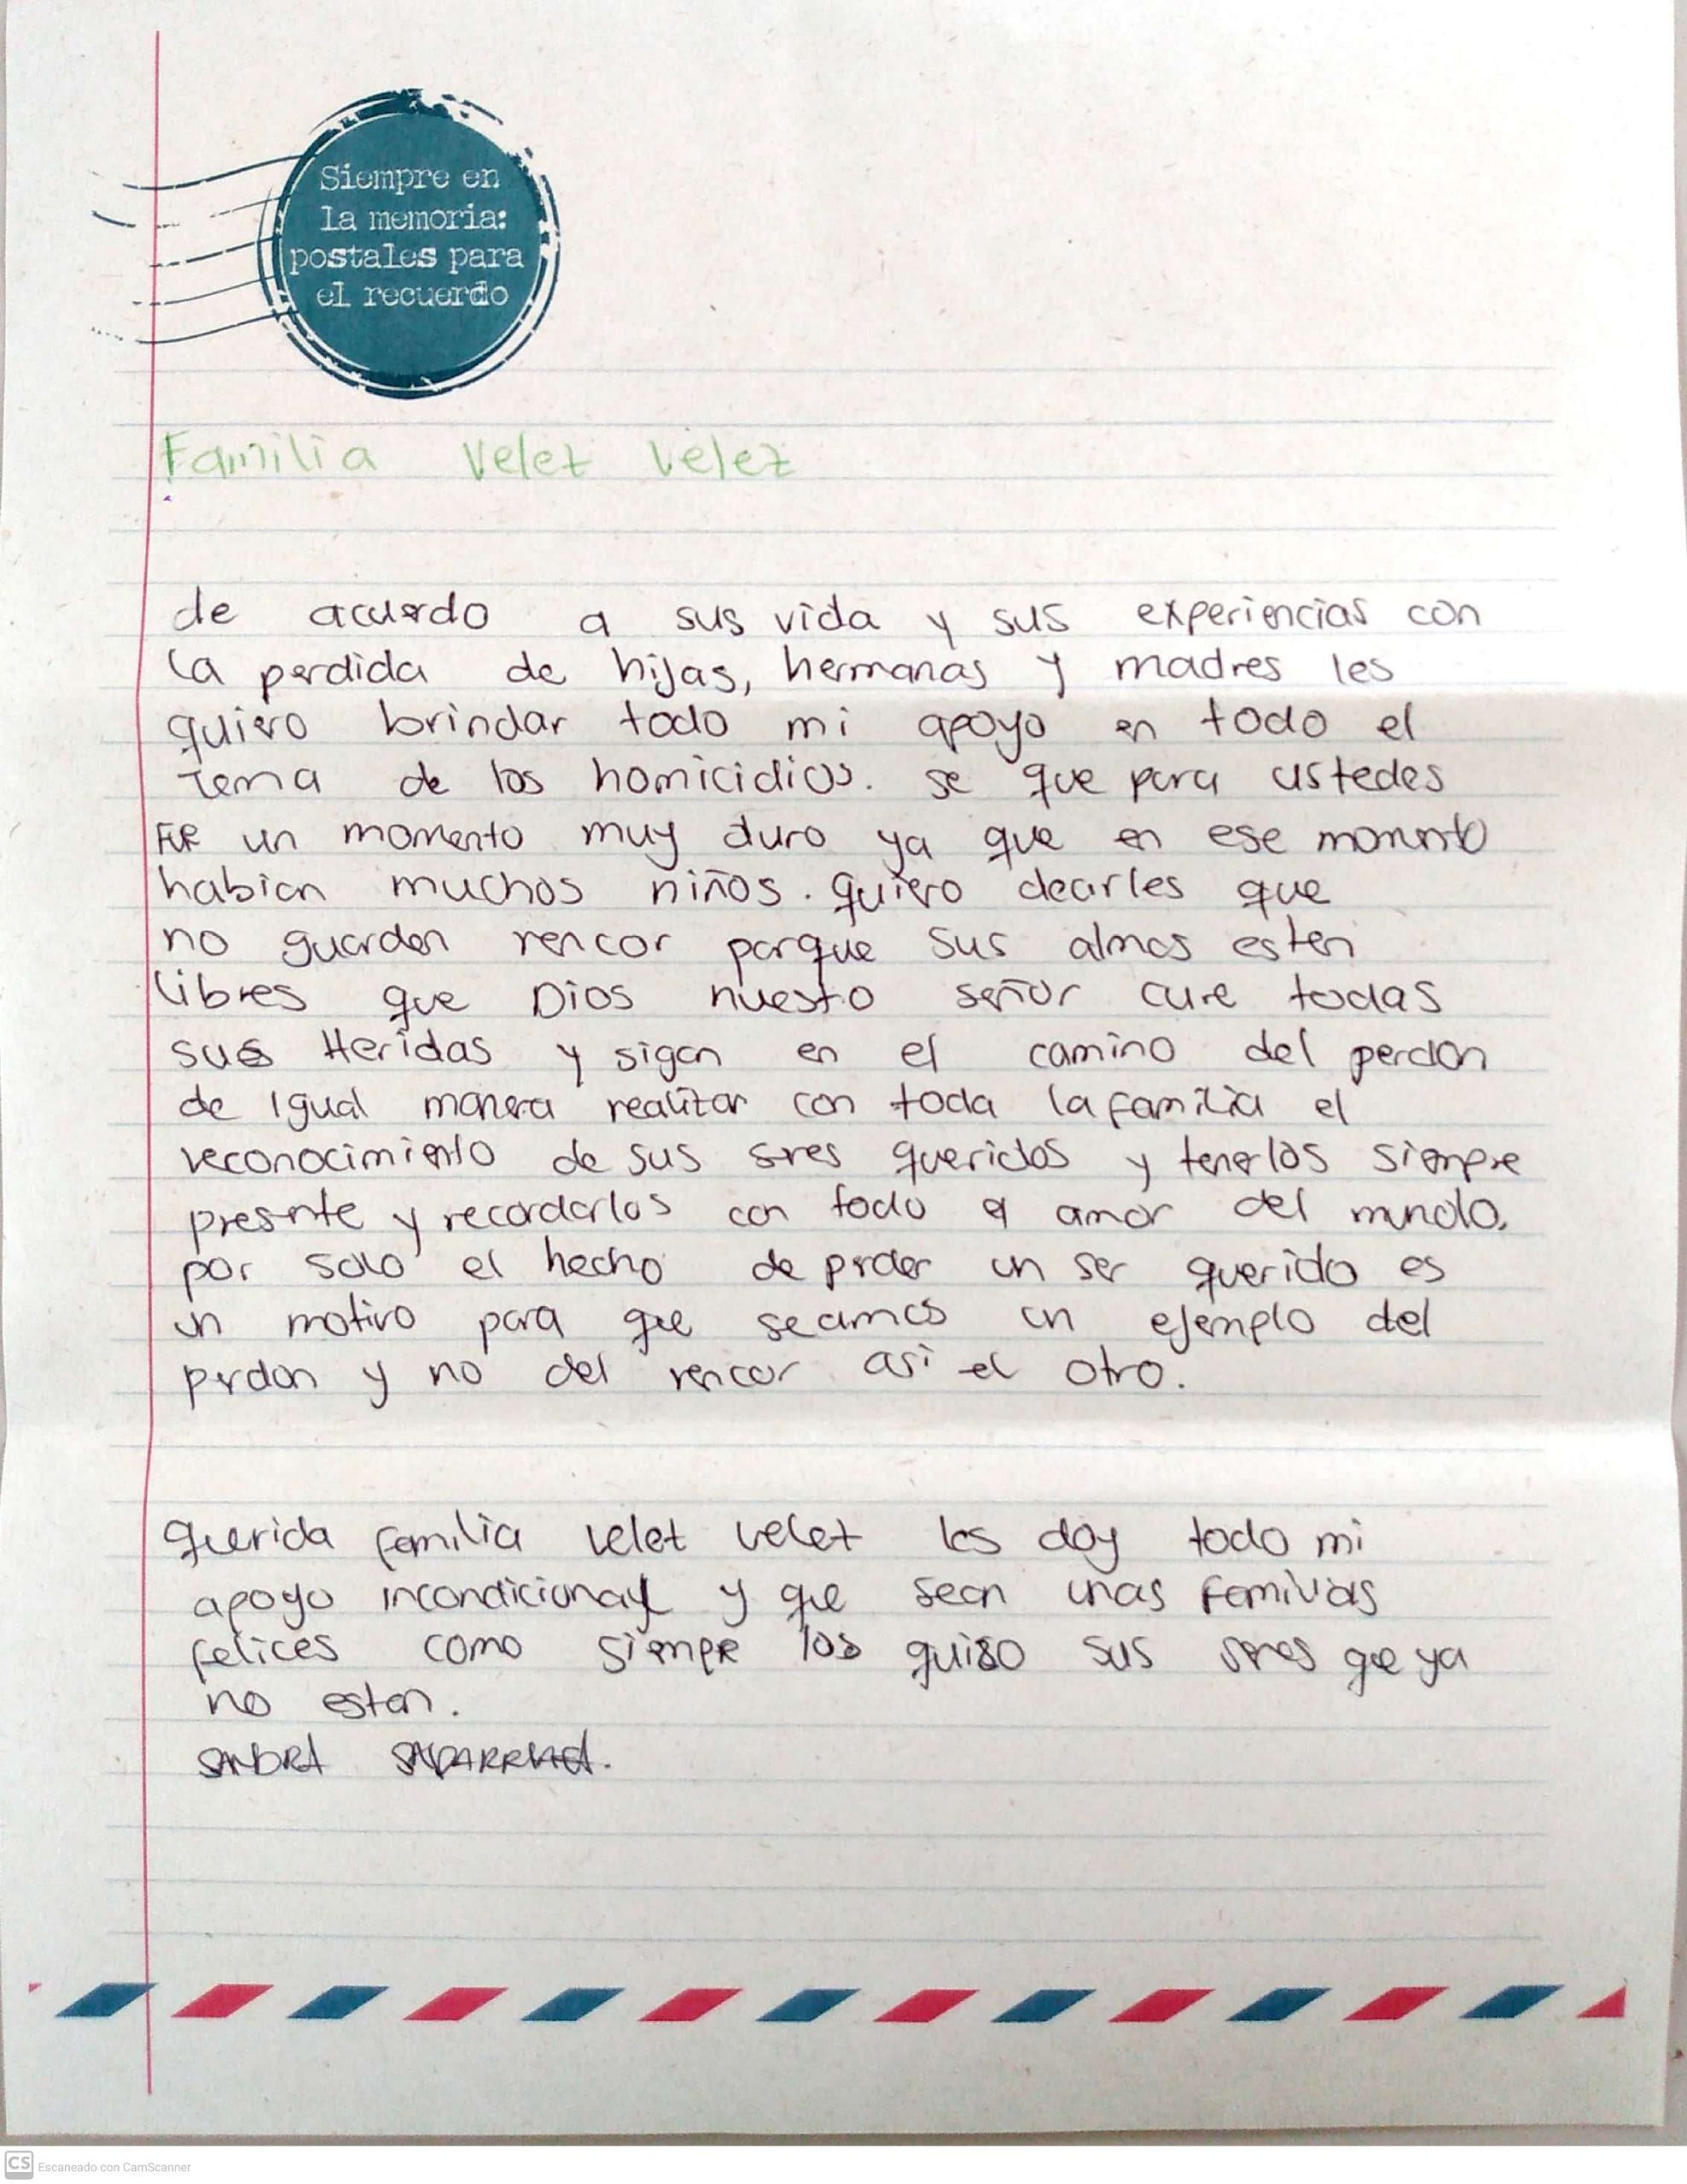 Siempre en
la memoria:
postales para
el recuerdo
Familia Velez Velez
de acuerdo a sus vida y sus experiencias con
la perdida de hijas, hermanas y madres les
quiero brindar todo mi apoyo en todo el
Tema de los homicidios. se que para ustedes
FUE un momento muy duro ya que en ese momento
habian muchos niños. quiero decirles que
no guarden rencor porque sus almas esten
libres que Dios nuesto señor cure todas
sus Heridas y sigan en el camino del perdon
de igual manera realizar con toda la familia el
reconocimiento de sus seres queridos y tenerlos siempre
presente y recordarlos con todo el amor del mundo.
por solo el hecho de perder un ser querido es
un motivo para que seamos un ejemplo del
perdon y no del rencor asi el otro.
querida familia Velez Velez les doy todo mi
apoyo incondicional y que sean unas familias
felices como siempre los quiso sus seres que ya
no estan.
SANDRA
CS Escaneado con CamScanner